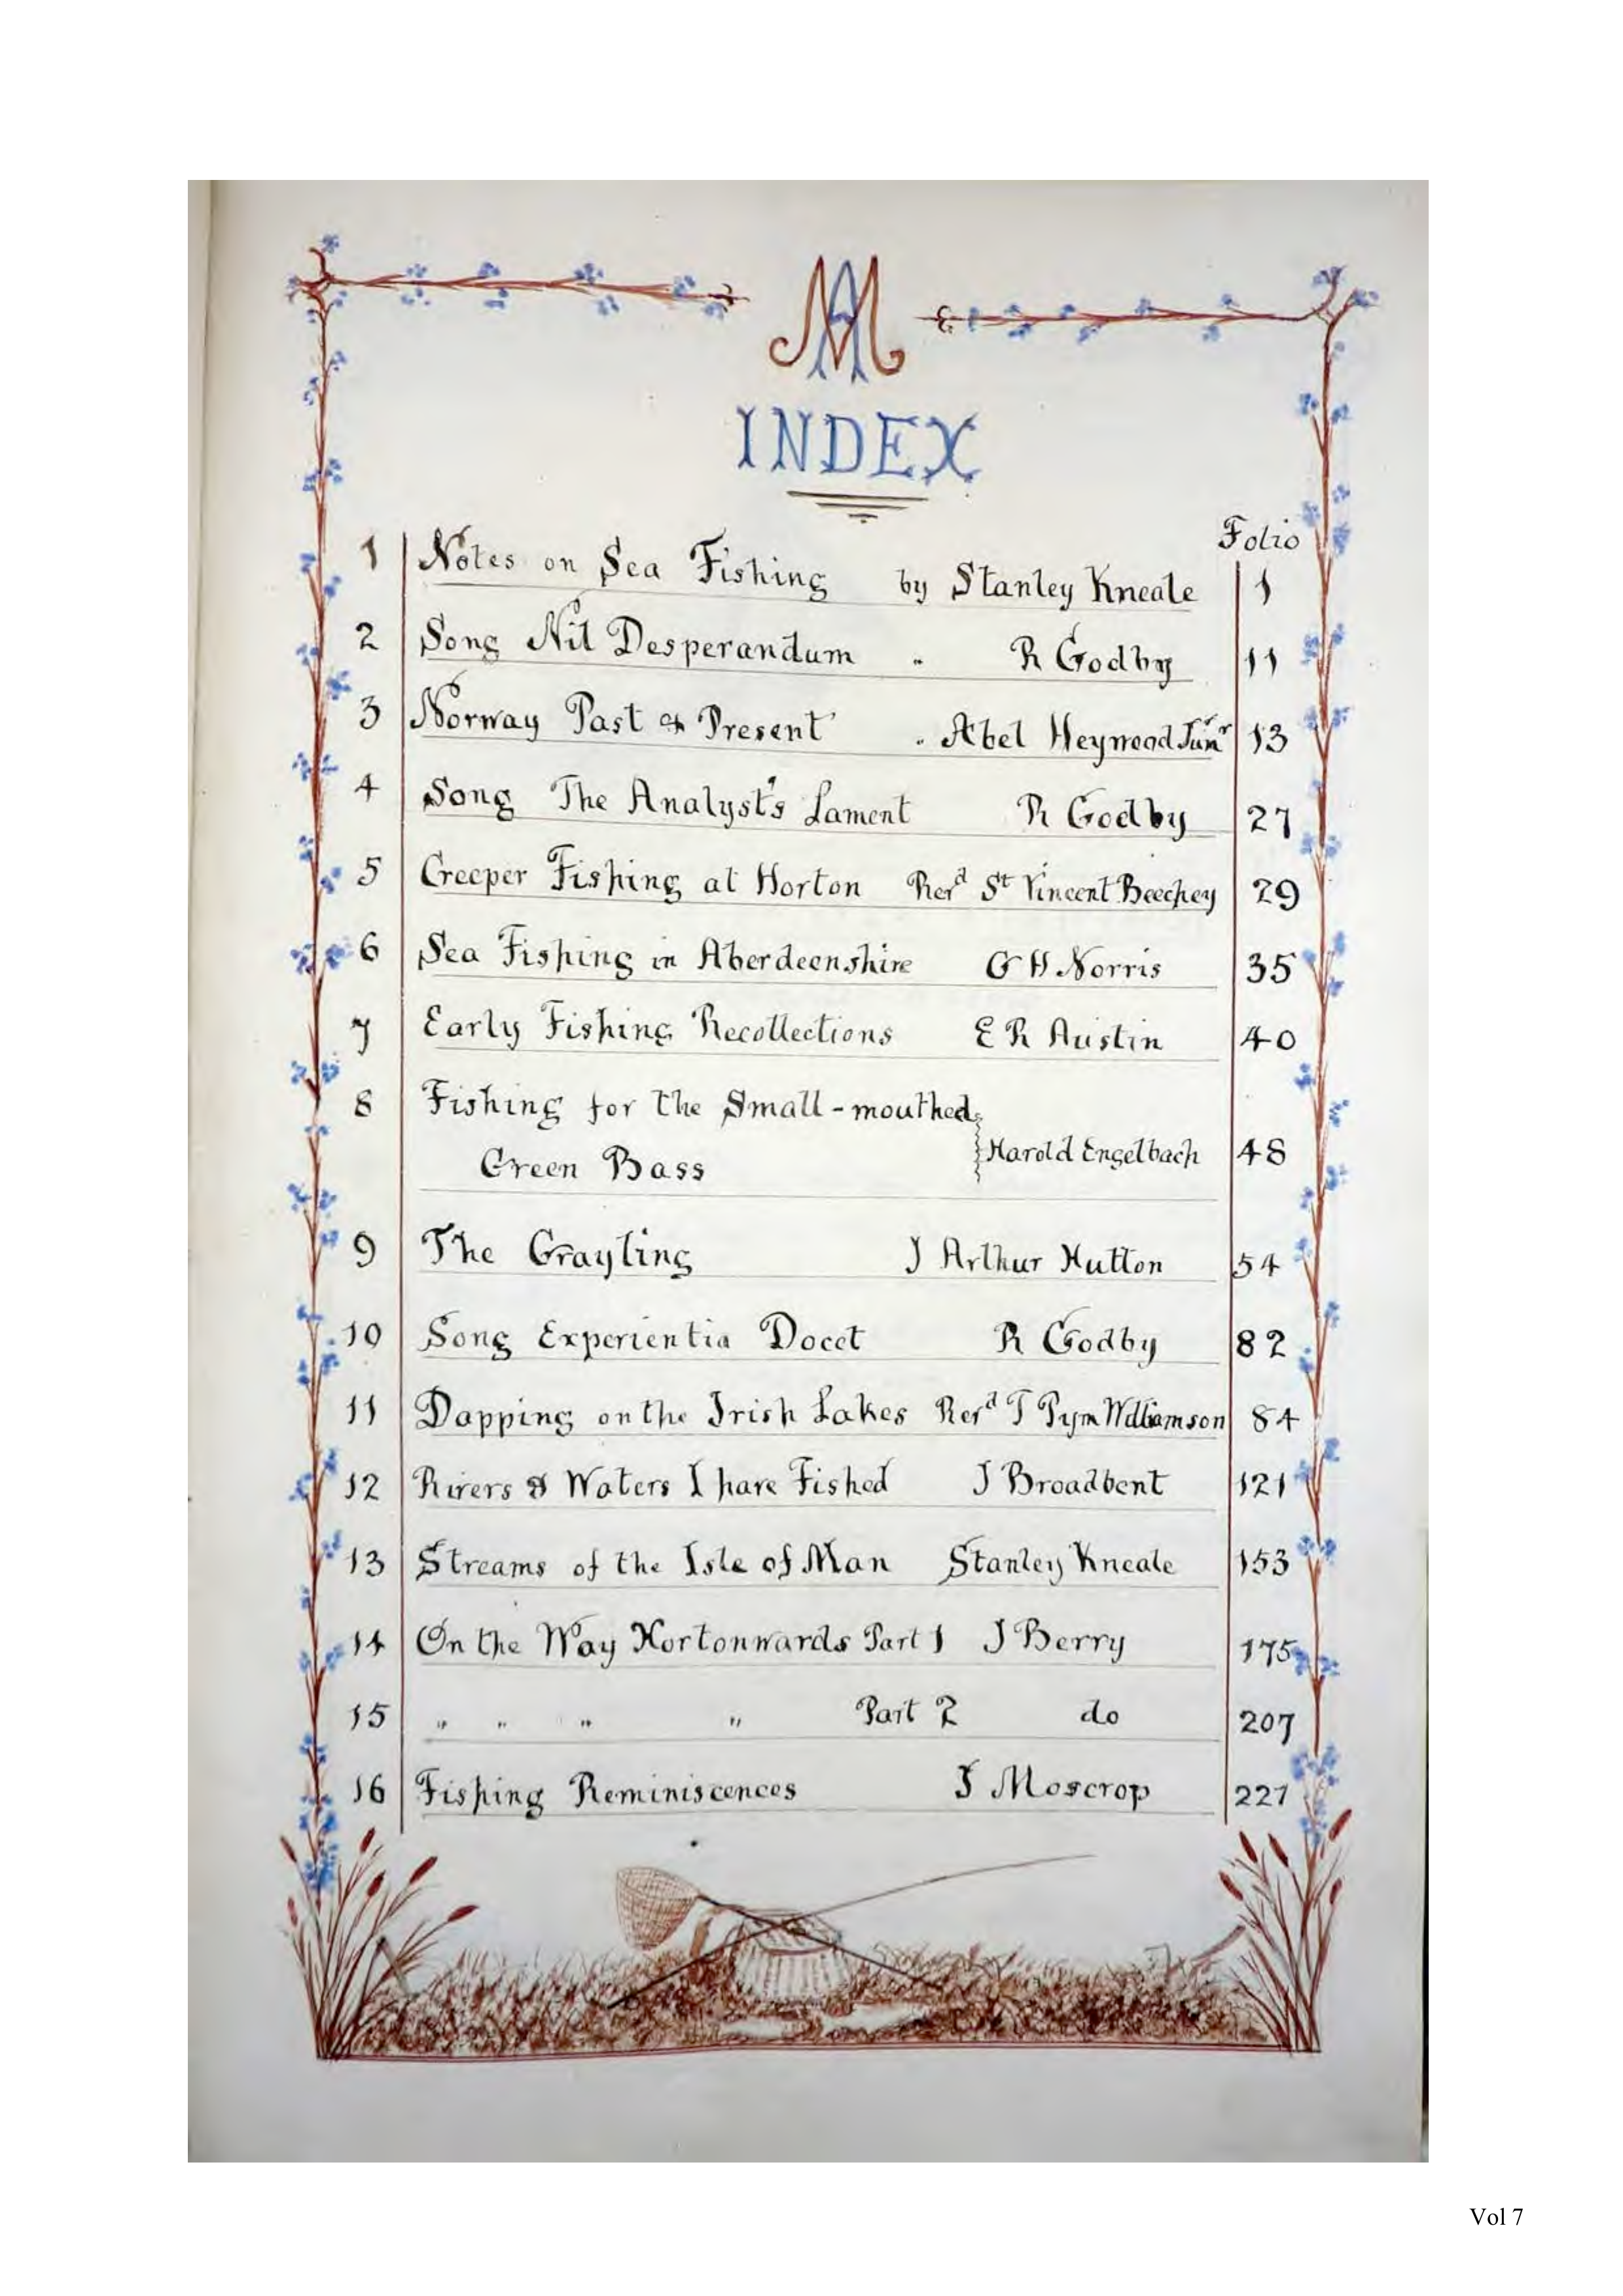 MA
INDEX
Folio
1 Notes on Sea Fishing by Stanley Kneale 1
2 Song Nil Desperandum " R Godby 11
3 Norway Past & Present " Abel Heywood Junr 13
4 Song The Analyst's Lament R Godby 27
5 Creeper Fishing at Horton Revd St Vincent Beechey 29
6 Sea Fishing in Aberdeenshire G H Norris 35
7 Early Fishing Recollections E R Austin 40
8 Fishing for the Small-mouthed
Green Bass Harold Engelbach 48
9 The Grayling J Arthur Hutton 54
10 Song Experientia Docet R Godby 82
11 Dapping on the Irish Lakes Revd T Pym Williamson 84
12 Rivers & Waters I have Fished J Broadbent 121
13 Streams of the Isle of Man Stanley Kneale 153
14 On the Way Hortonwards Part 1 J Berry 175
15 " " " " Part 2 do 207
16 Fishing Reminiscences J Moscrop 227
Vol 7